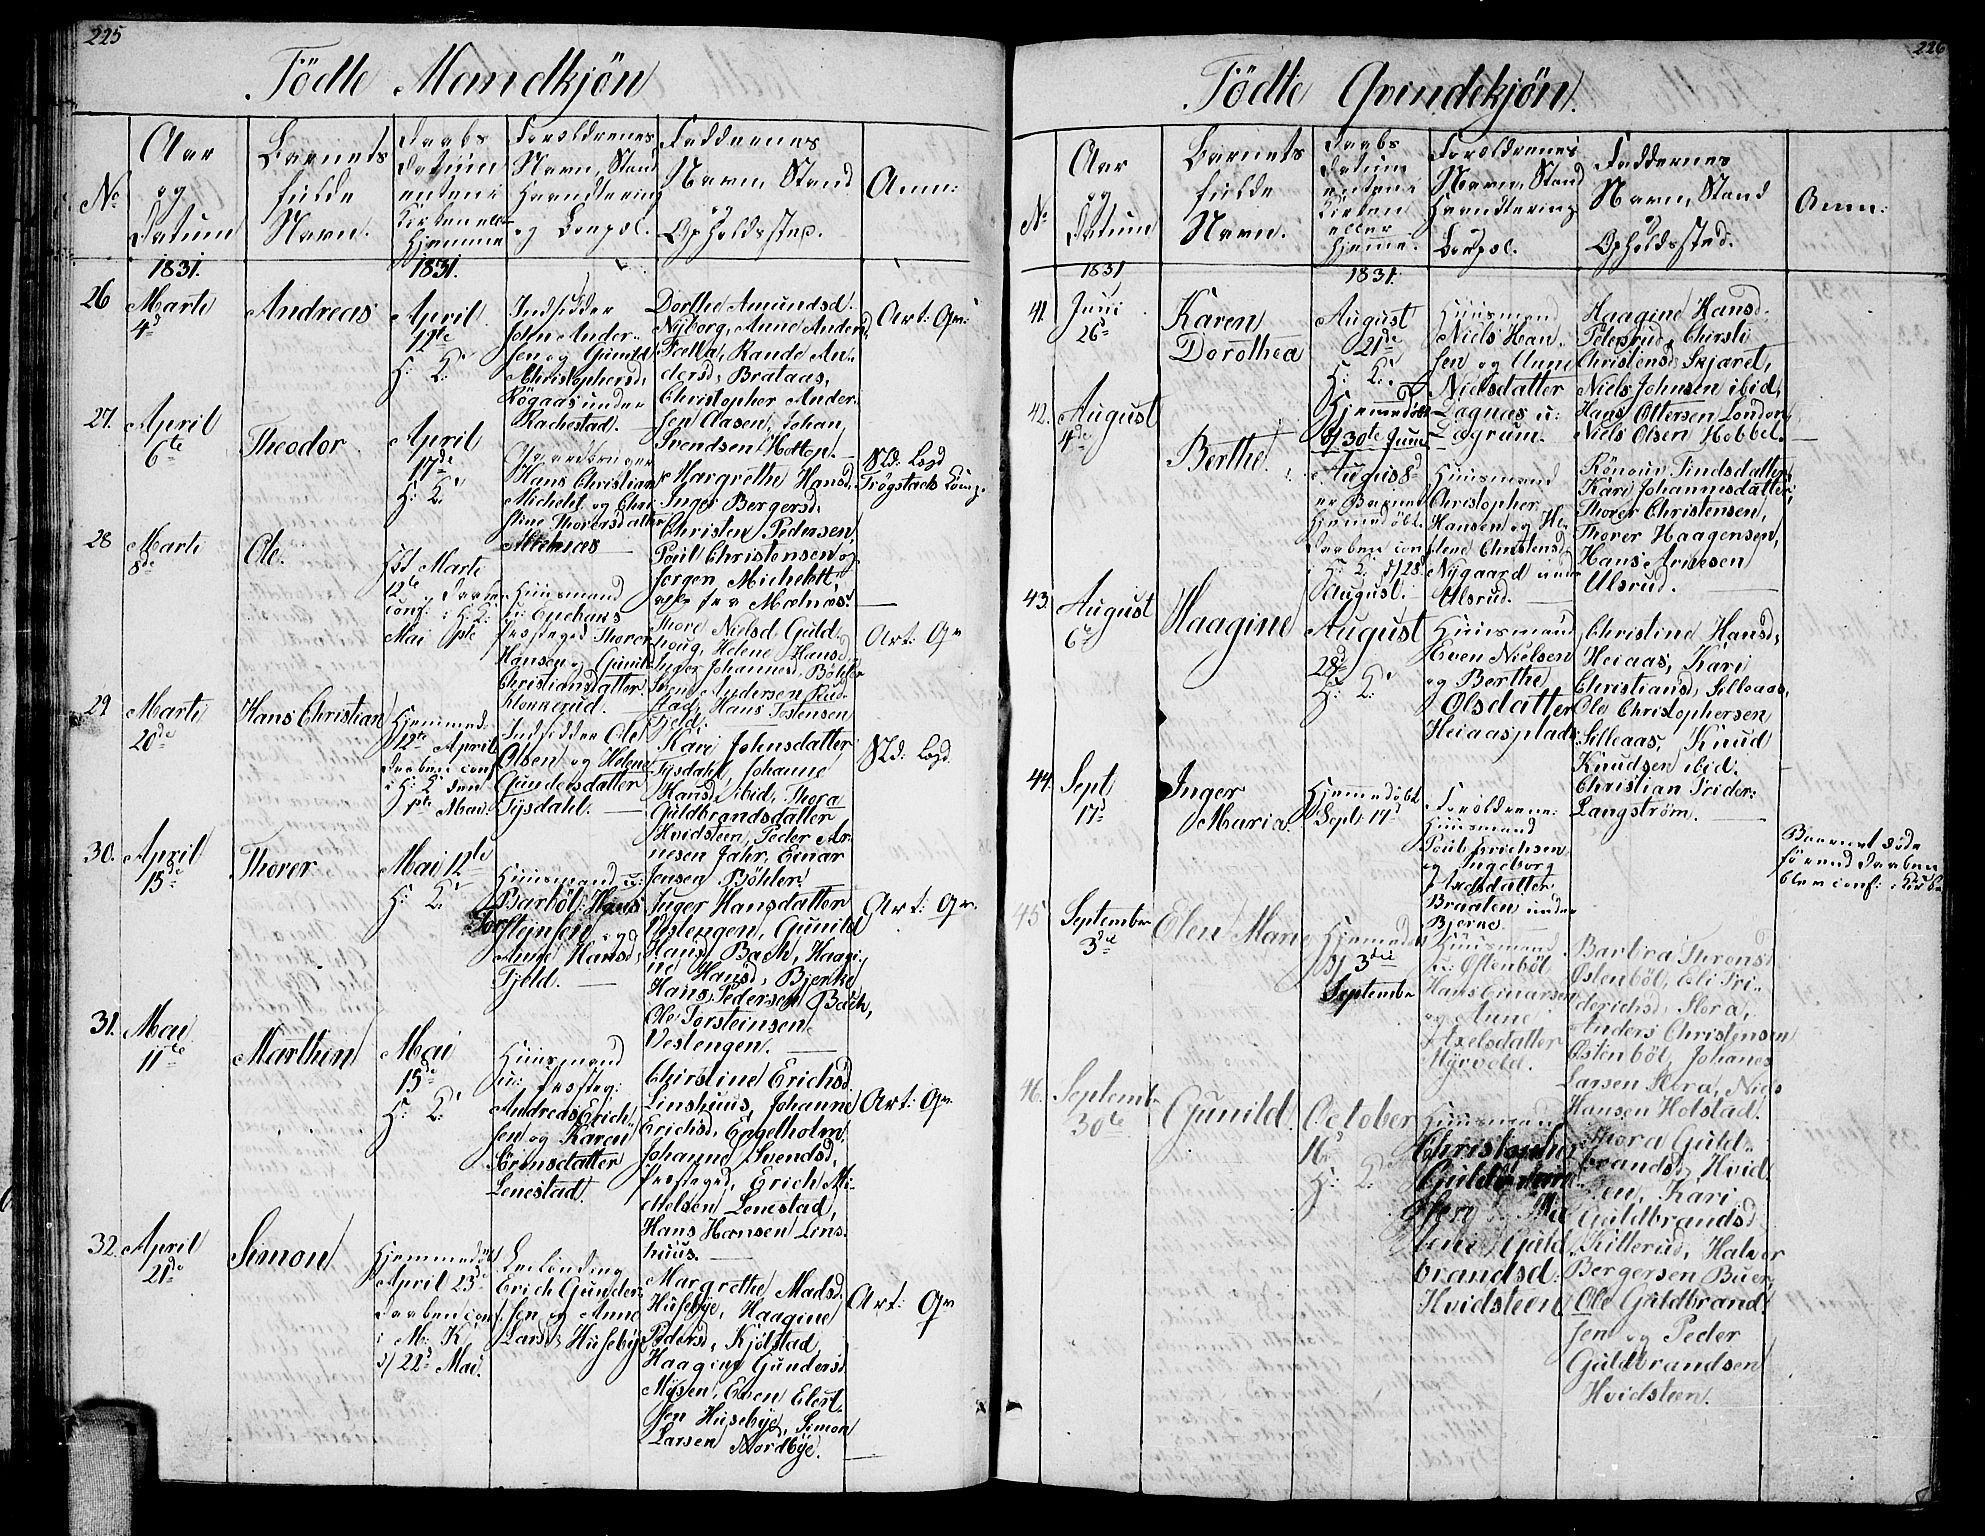 225
Födte Mandkjön
No
Aar
og
Datum
Barnets
fulde
Navn.
Daabs
Datum
enten i
Kirken ell.
Hjemme
Foreldrenes
Navn, Stand
Haandtering
og Boepæl.
Faddernes
Navn, Stand
og
Opholdssted.
Anm:
1831.
1831.
26
Marti
4d
Andreas
April
12te
H: K:
Indsidder
John Ander-
sen og Gunild
Christophersd.
Rögaas under
Rachestad.
Dorthe Amundsd.
Nyborg, Anne Andersd.
Foella, Rande An-
dersd. Brataas,
Christopher Ander-
sen Aasen, Johan
Svendsen Hotton.
Art: Qv:
27.
April
6te
Theodor
April
17de
H: K:
Gaardbruger
Hans Christian
Michelet og Chri-
stine Thorersdatter
Melnæs
Margrethe Hansd.
Inger Bergersd.
Christen Pedersen,
Poul Christensen og
Jorgen Michelett
alle fra Melnæs.
Sld: Logd
Trögstads Comp.
28
Marti
8de
Ole.
Marti
12te
Daaben
conf: i H: K:
Mai 1ste
Huusmand
u: Enehans
Præstegd Thorer
Hansen og Gunild
Christiansdatter
Klonnerud.
Thore Nielsd. Guld-
houg, Helene Hansd.
Inger Johannesd. Böhler
Svend Andersen Rud-
stad, Hans Tostensen
Fjeld.
Art: Qv
29
Marti
20de
Hans Christian
Hjemmed.
12te April
Daaben conf.
i H: K: den
1ste Mai.
Indsidder Ole
Olsen og Helene
Gundersdatter
Tysdahl.
Kari Johnsdatter
Tysdahl, Johanne
Hansd. ibid, Thora
Guldbrandsdatter
Hvidsteen, Peder Ar-
nesen Jahr, Einar
Jensen Böhler.
Sld: Logd
30.
April
15de
Thorer
Mai 12te
H: K:
Huusmand u:
Barböl Hans
Torstensen og
Anne Hansd.
Fjeld.
Inger Hansdatter
Vestengen, Gunild
Hansd. Bach, Haagi-
ne Hansd. Bjerke
Hans Pedersen Bach,
Ole Torsteinsen
Vestengen.
Art: Qv.
31.
Mai
11te
Marthin
Mai
15de
H: K:
Huusmand
u: Præsteg:
Andreas Erich-
sen og Karen
Arensdatter
Lenestad.
Christine Erichsd.
Linshuus, Johanne
Erichsd. Engelholm,
Johanne Svendsd.
Præstegrd, Erich Mi-
chelsen Lenestad,
Hans Hansen Lins-
huus.
Art: Qv
32.
April
21de
Simon
Hjemmedöbt
April 23de
Daaben conf.
i M: K:
d/ 22d Mai.
Leilænding
Erich Gunder-
sen og Anne
Larsd. Husebye
Margrethe Madsd.
Husebye, Haagine
Pedersd. Kjölstad,
Haagine Gundersd.
Mysen, Even Elert-
sen Husebye, Simon
Larsen Nordbye.
Art: Qv
226
Födte Qvindekjön.
No
Aar
og
Datum
Barnets
fulde
Navn.
Daabs
Datum
enten i
Kirken
eller
Hjeme.
Foreldrenes
Navn, Stand
Haandtering
Boepæl.
Faddernes
Navn, Stand
og
Opholdssted.
Anm:
1831
1831.
41.
Juni
26d
Karen
Dorothea
August
21de
H: K:
Hjemmedöbt
d/ 30te Juni
Huusmand
Niels Han-
sen og Anne
Nielsdatter
Lagaas u:
Lagrum.
Haagine Hansd.
Petersrud, Chirsti
Christensd. Skjaret,
Niels Johnsen ibid,
Hans Ottersen London,
Niels Olsen Hobbel.
42.
August
4de
Berthe.
August 8d
er Barnet
Hjemedöbt.
Daaben conf.
i H: K: d/ 28
August.
Huusmand
Christopher
Hansen og He-
lene Christensd.
Nygaard under
Ulsrud.
Rönnouv Findsdatter
Kari Johannesdatter
Thorer Christensen,
Thorer Haagensen,
Hans Arnesen
Ulsrud.
43.
August
6te
Haagine
August
28d
H: K:
Huusmand
Even Nielsen
og Berthe
Olsdatter
Heiaasplads
Christine Hansd.
Heiaas, Kari
Christiansd. Selleaas,
Ole Christophersen
Selleaas, Knud
Knudsen ibid.
Christian Frider:
Langström.
44.
Sept
17d
Inger
Maria.
Hjemedöbt
Sept. 17d
Foreldrene:
Huusmand
Poul Erichsen
og Ingeborg
Axelsdatter
Braaten under
Bjerne.
Barnet döde
förend Daaben
blev conf: i Kirke
45
September
3die
Elen Marie
Hjemmedöbt
d/ 3die
September
Huusmand
u: Østenböl
Hans Einarsen
og Anne
Axelsdatter
Myrvold.
Barbra Thronsd.
Østenböl, Eli Fri-
derichsd. Flora,
Anders Christensen
Østenböl, Johanes
Larsen Flora, Niels
Hansen Holstad.
46.
September
30te
Gunild.
October
16d
H: K:
Huusmand
Christopher
Guldbrand-
sen
Guld-
brandsd.
Hvidsteen
Thora Guld-
brandsd. Hvid-
sten, Kari
Guldbrandsd.
Kitterud, Halvor
Bergersen Buer,
Ole Guldbrand-
sen og Peder
Guldbrandsen
Hvidsteen.